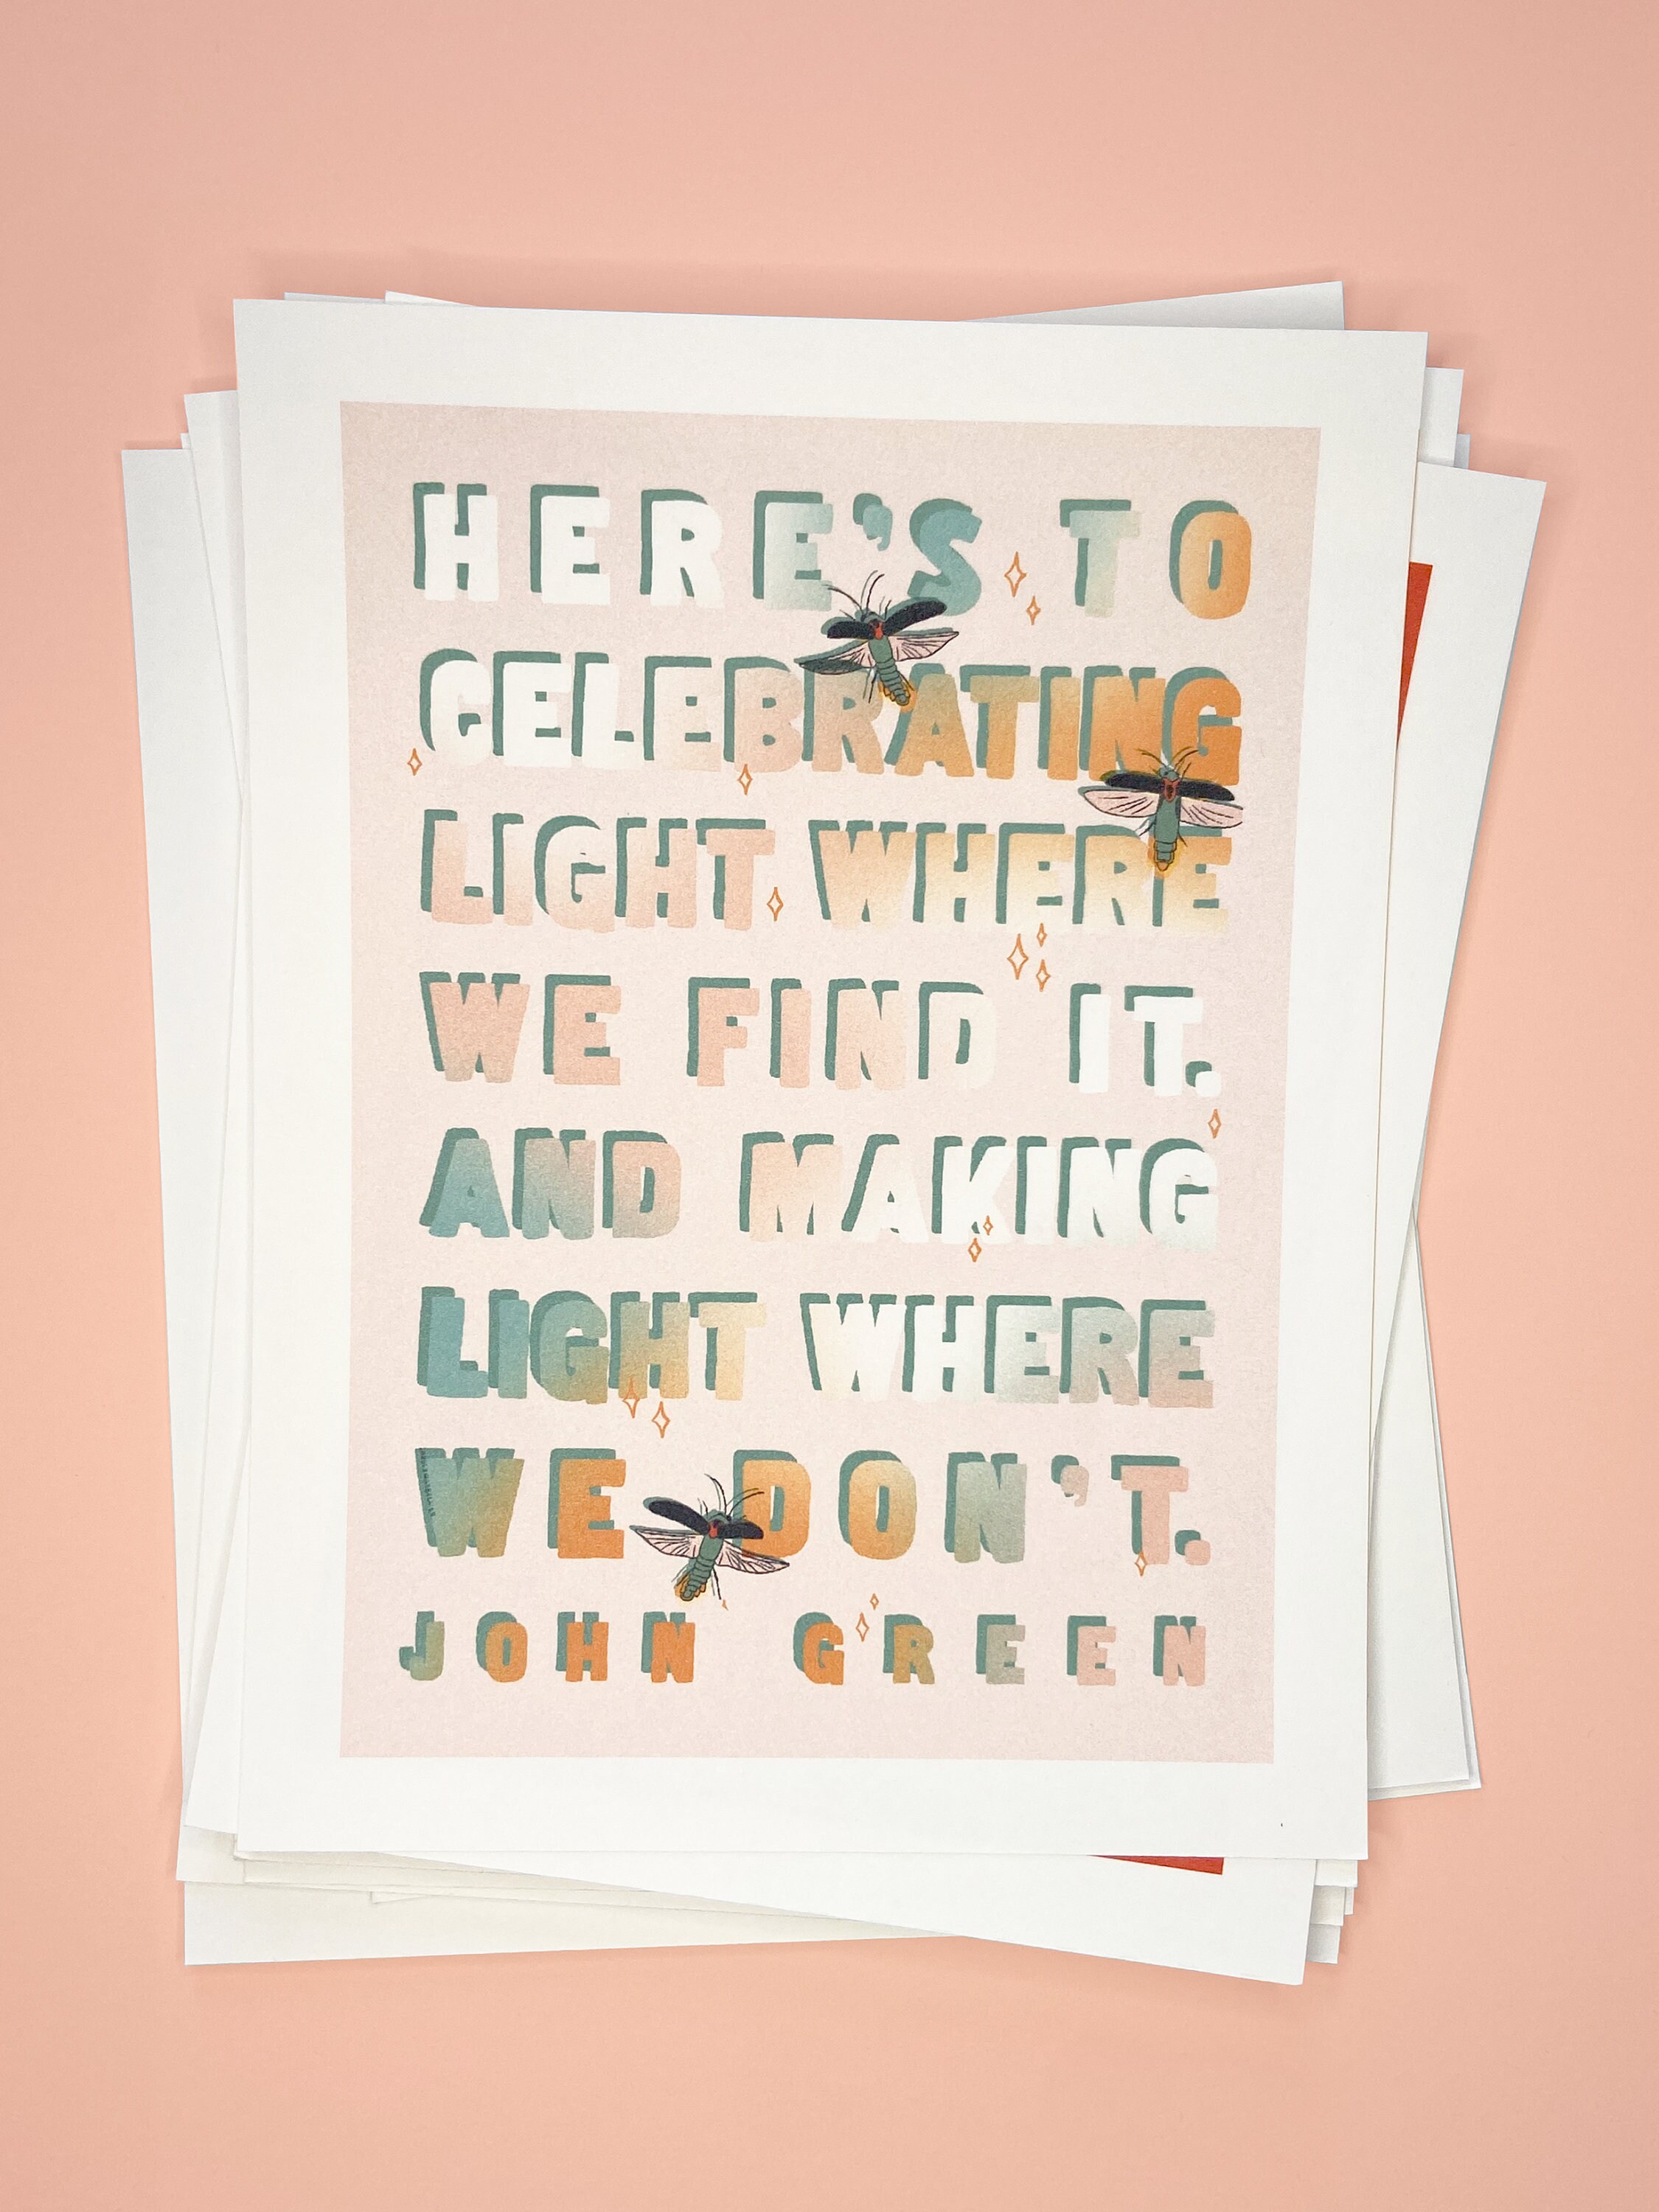 HERE'S TO
CELEBRATING
LIGHT WHERE
WE FIND IT.
AND MAKING
LIGHT WHERE
WE DON'T.
JOHN GREEN